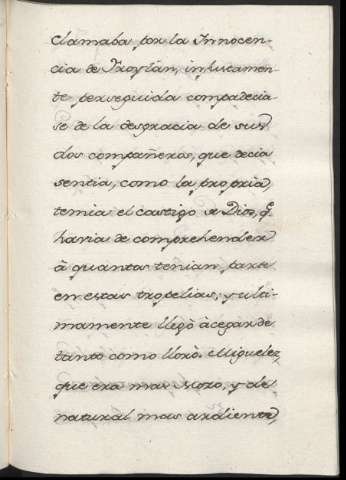 Clamaba por la Innocen-
cia de Froylan, injustamen-
te perseguida compadecia
se de la desgracia de sus
dos compañeros, que decia
sentia, como la propria,
temia el castigo de Dios, q̃
havia de comprehender
à quantos tenian parte
en estas tropelias, y ulti-
mamente llegò à cegar de
tanto como llorò. Miguelez,
que era mas Mozo, y de
natural mas ardiente,